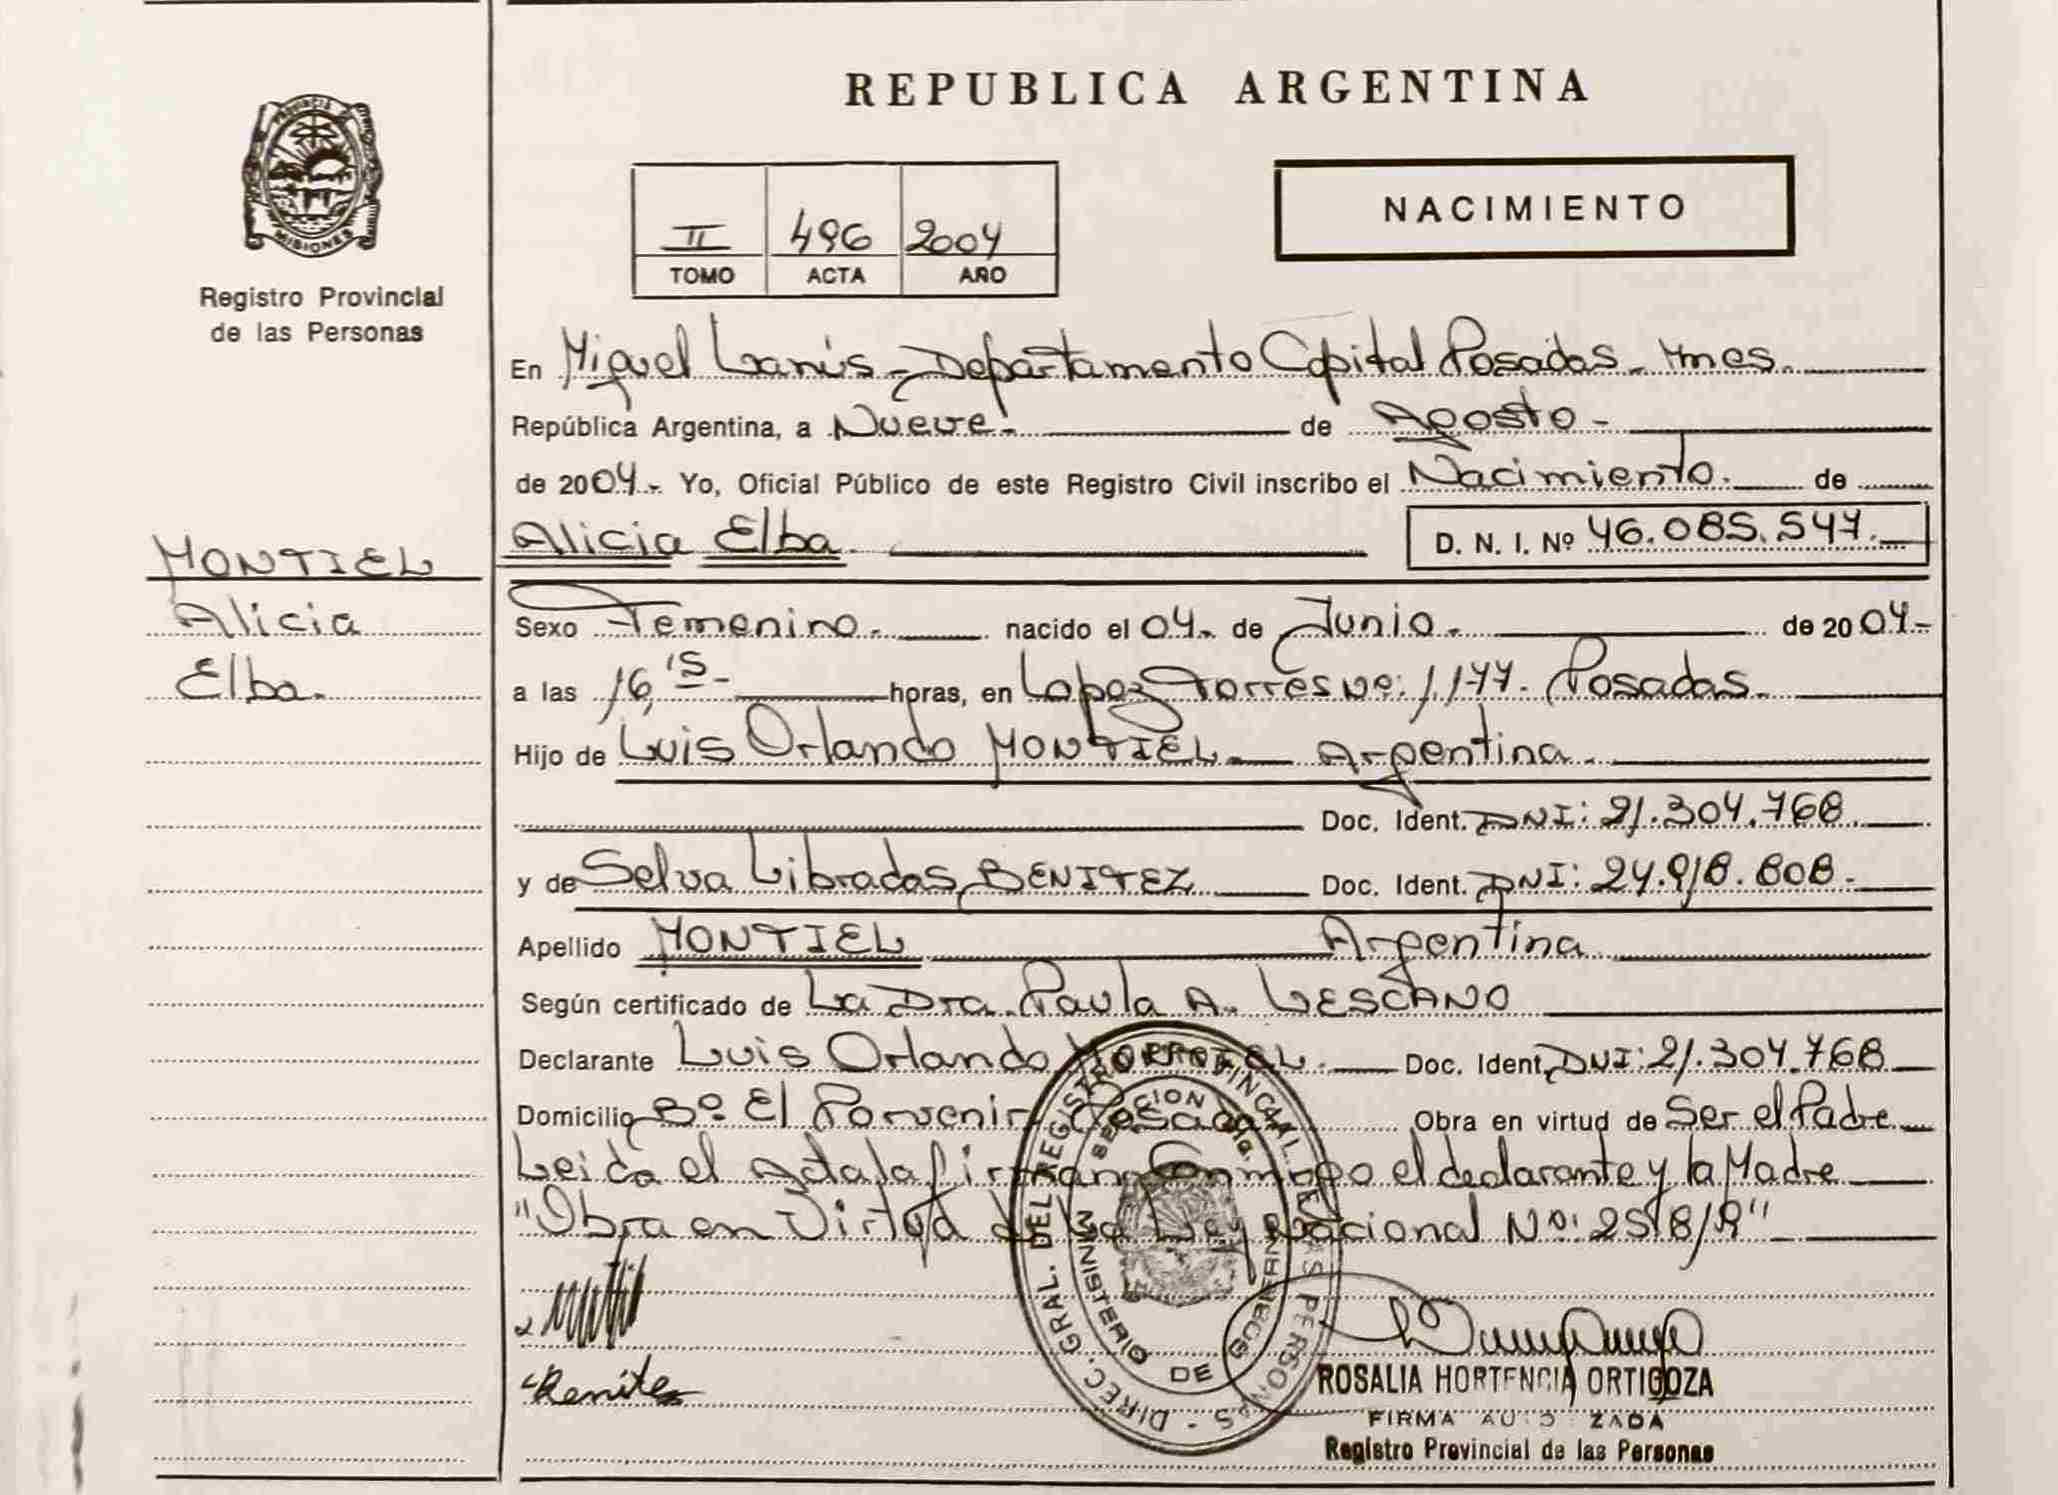 REPUBLICA ARGENTINA
PROVINCIA
MISIONES
Registro Provincial
de las Personas
II 496 2004
TOMO ACTA AÑO
NACIMIENTO
En Miguel Lanús - Departamento Capital Posadas - Mnes.
República Argentina, a Nueve.- de Agosto -
de 2004.- Yo, Oficial Público de este Registro Civil inscribo el Nacimiento. de
Alicia Elba. D. N. I. Nº 46.085.547.
MONTIEL
Alicia
Elba.
Sexo Femenino.- nacido el 04.- de Junio.- de 2004.-
a las 16,15.- horas, en Lopez Torres Nº: 1.177. Posadas.
Hijo de Luis Orlando MONTIEL Argentina.
Doc. Ident. DNI: 21.304.768.
y de Selva Libradas BENITEZ Doc. Ident. DNI: 24.918.808.
Apellido MONTIEL Argentina.
Según certificado de La Dra. Paula A. LESCANO
Declarante Luis Orlando MONTIEL. Doc. Ident. DNI: 21.304.768
Domicilio Bº. El Porvenir Posadas Obra en virtud de Ser el Padre.
Leida el Acta la firman Conmigo el declarante y la Madre
"Obra en Virtud de la Ley Nacional Nº: 25.819"
DIREC. GRAL. DEL REGISTRO PROVINCIAL DE LAS PERSONAS -
MINISTERIO DE GOBIERNO
Benitez
ROSALIA HORTENCIA ORTIGOZA
FIRMA AUTORIZADA
Registro Provincial de las Personas